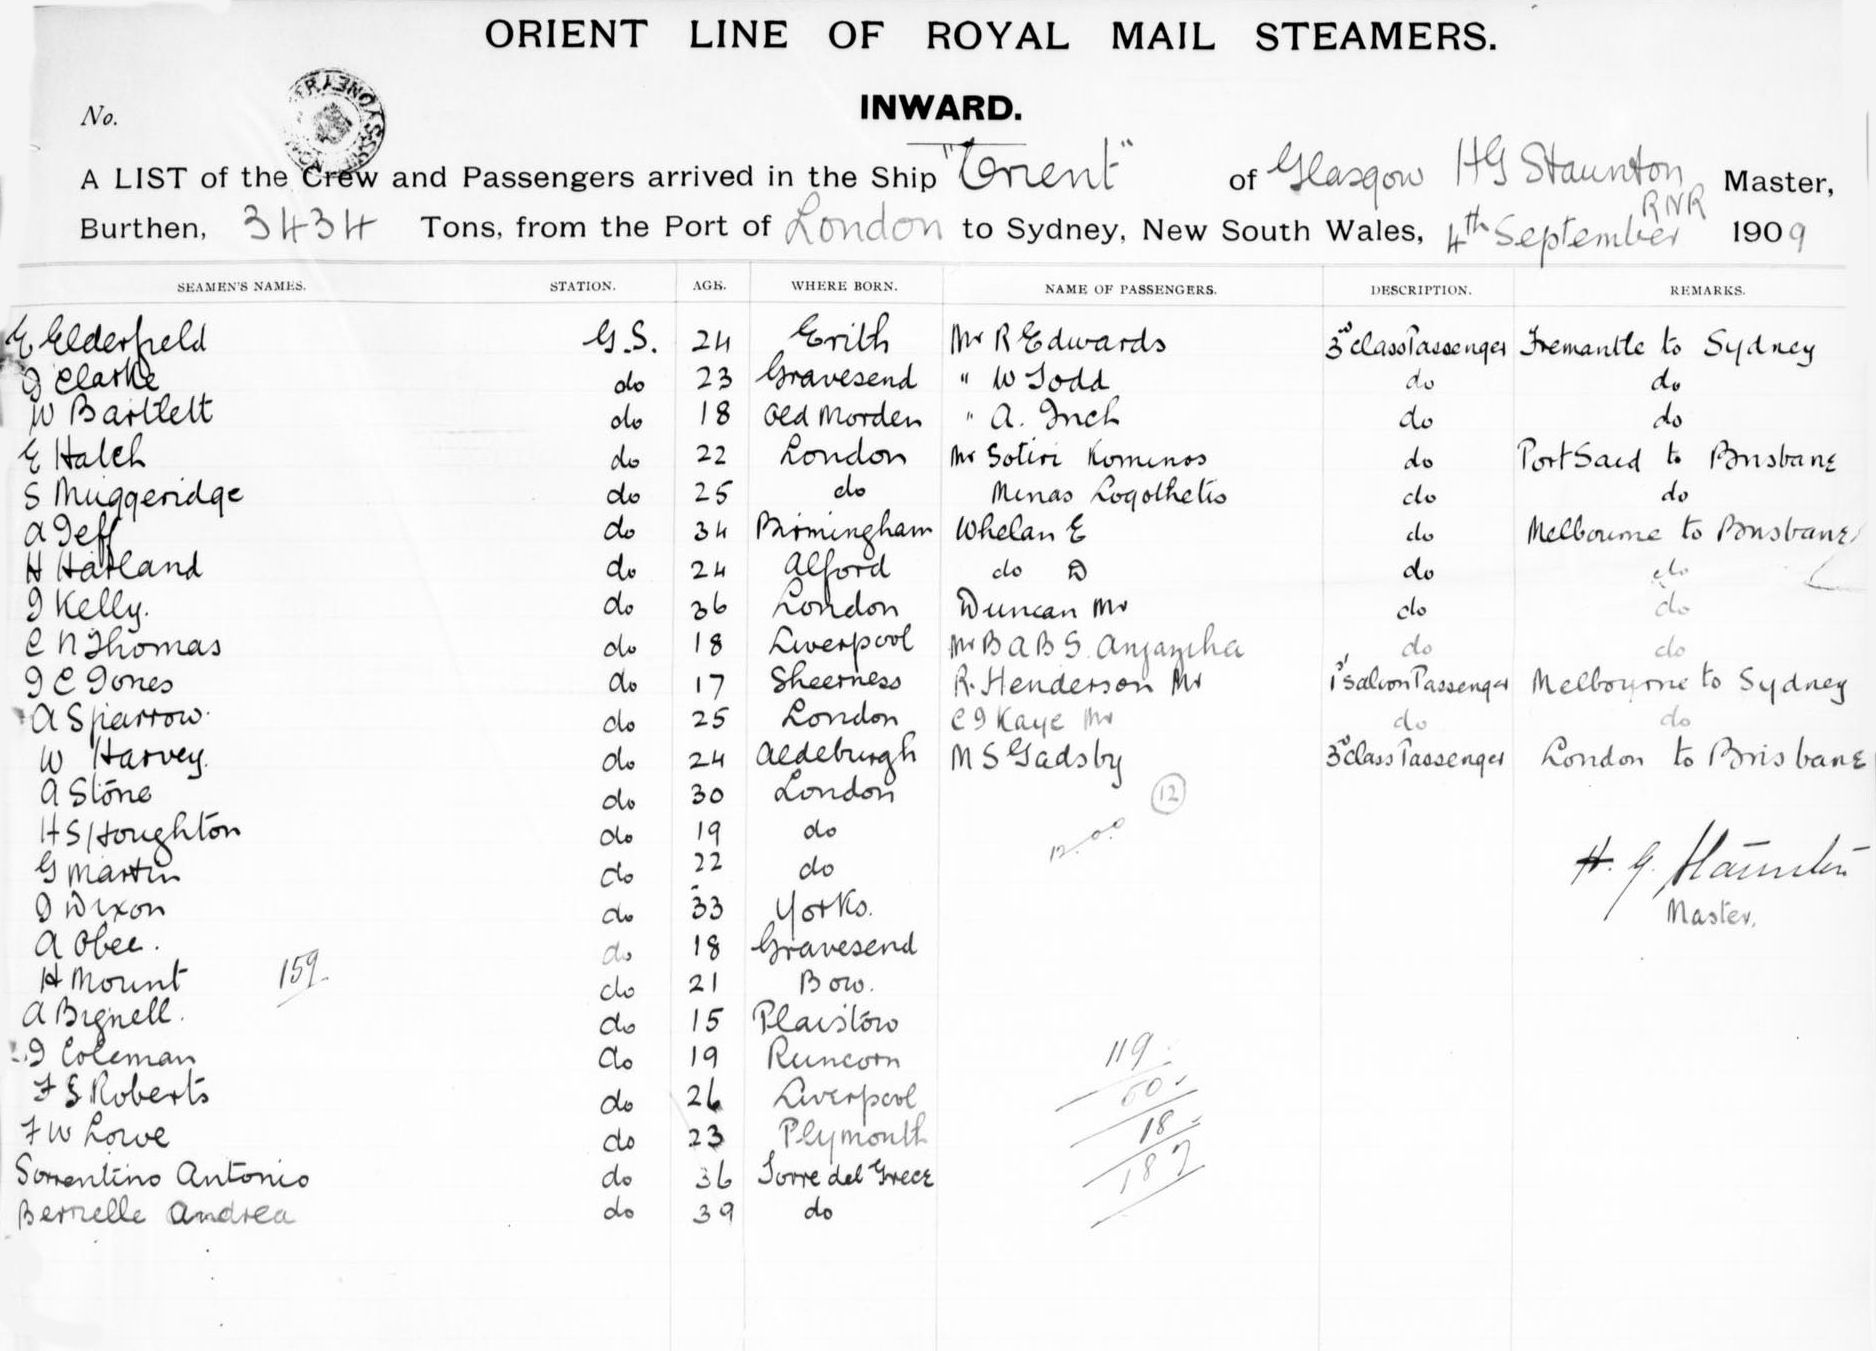 ORIENT LINE OF ROYAL MAIL STEAMERS.
INWARD.
No.
A LIST of the Crew and Passengers arrived in the Ship "Orient" of Glasgow H G Staunton RNR Master,
Burthen, 3434 Tons, from the Port of London to Sydney, New South Wales, 4th September 1909
SEAMEN'S NAMES. STATION. AGE. WHERE BORN. NAME OF PASSENGERS. DESCRIPTION. REMARKS.
E Elderfield G.S. 24 Erith Mr R Edwards 3rd class Passenger Fremantle to Sydney
J Clarke do 23 Gravesend " W Todd do do
W Bartlett do 18 Old Morden " A. Inch do do
E Hatch do 22 London Mr Sotiri Komenos do Port Said to Brisbane
S Muggeridge do 25 do Menas Logothetis do do
A Jeff do 34 Birmingham Whelan E do Melbourne to Brisbane
H Harland do 24 Alford do D do do
J Kelly. do 36 London Duncan Mr do do
C N Thomas do 18 Liverpool Mr B A B S. do do
J C Jones do 17 Sheerness R. Henderson Mr 1st Saloon Passenger Melbourne to Sydney
A Sparrow do 25 London C J Kaye Mr do do
W Harvey. do 24 Aldeburgh M S Gadsby 3rd class Passenger London to Brisbane
A Stone do 30 London 12
H S Houghton do 19 do
G Martin do 22 do H. G. Staunton
J Dixon do 33 Yorks. Master.
A Obee. do 18 Gravesend
H Mount 159 do 21 Bow.
A Bignell. do 15 Plaistow
J Coleman do 19 Runcorn 119
F S Roberts do 26 Liverpool 50
F W Lowe do 23 Plymouth 18
Sorrentino Antonio do 36 Torre del Grece 187
Andrea do 39 do